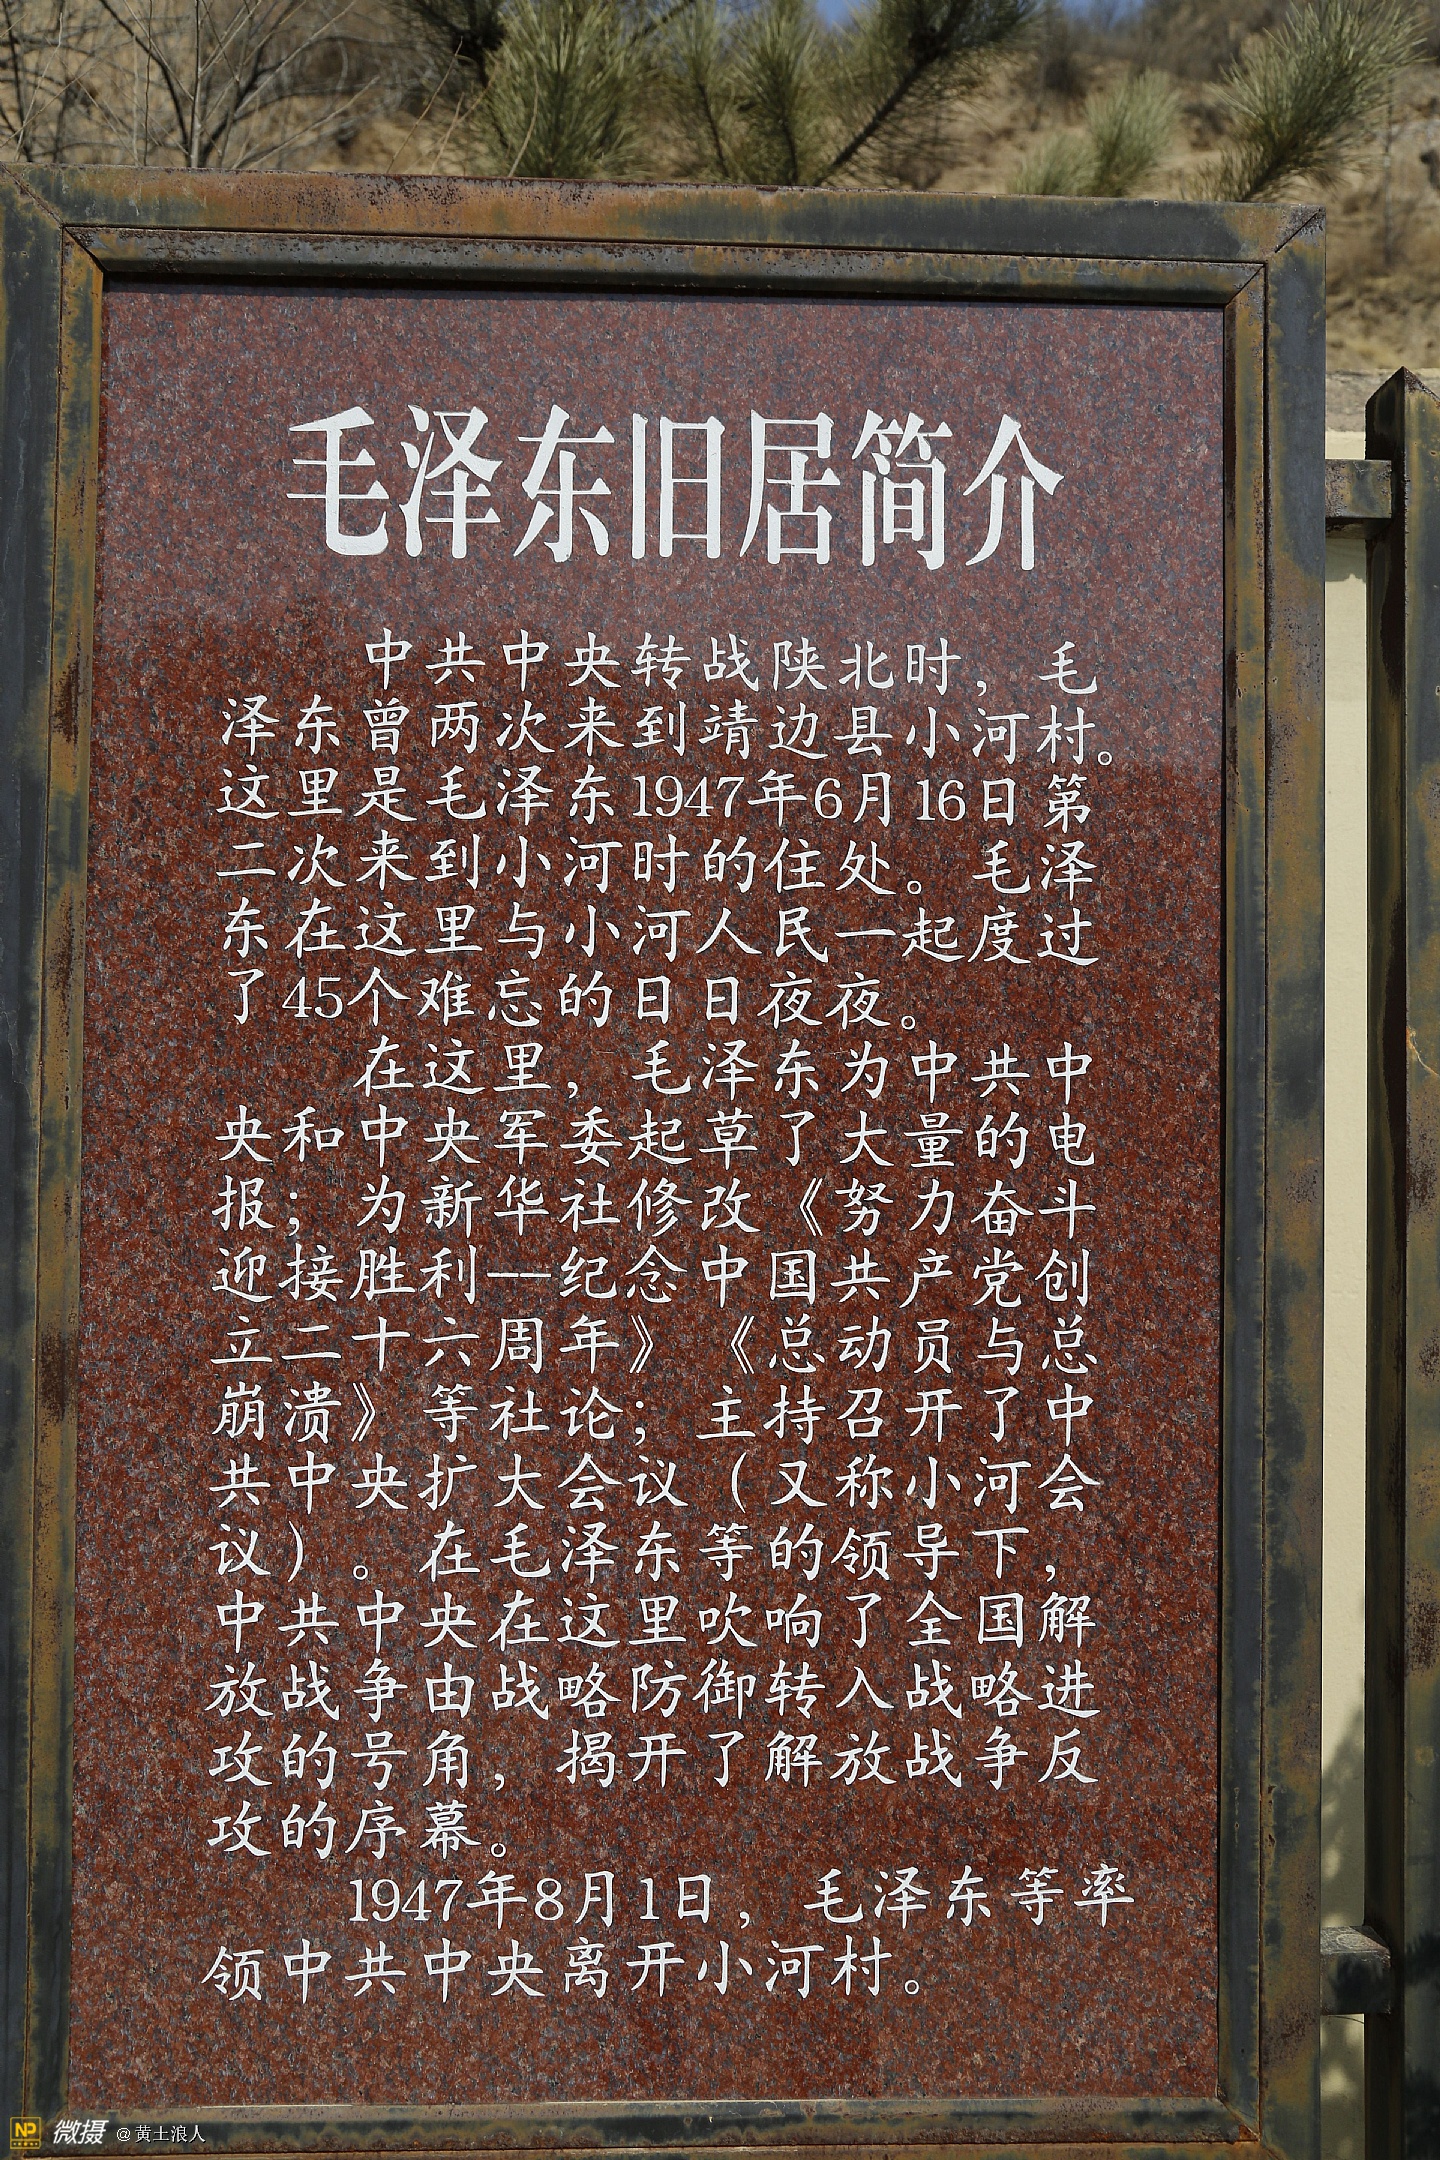 毛泽东旧居简介
中共中央转战陕北时，毛
泽东曾两次来到靖边县小河村。
这里是毛泽东1947年6月16日第
二次来到小河时的住处。毛泽
东在这里与小河人民一起度过
了45个难忘的日日夜夜。
在这里，毛泽东为中共中
央和中央军委起草了大量的电
报；为新华社修改《努力奋斗
迎接胜利——纪念中国共产党创
立二十六周年》《总动员与总
崩溃》等社论；主持召开了中
共中央扩大会议（又称小河会
议）。在毛泽东等的领导下，
中共中央在这里吹响了全国解
放战争由战略防御转入战略进
攻的号角，揭开了解放战争反
攻的序幕。
1947年8月1日，毛泽东等率
领中共中央离开小河村。
NP 微摄 @黄土浪人